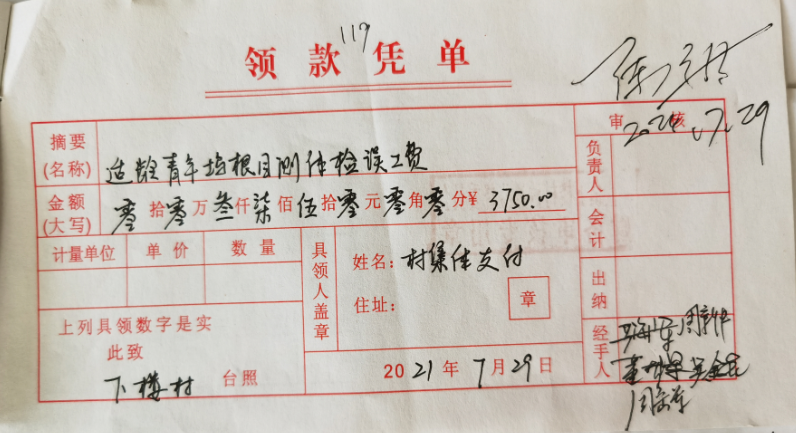 117
领款凭单
2021.7.29
审核
摘要(名称) 适龄青年 目测体检误工费
金额(大写) 零拾零万叁仟柒佰伍拾零元零角零分¥ 3750.00
计量单位 单价 数量
具领人盖章
姓名：村集体支付
住址： 章
上列具领数字是实
此致
下楼村 台照
2021年7月29日
负责人
会计
出纳
经手人